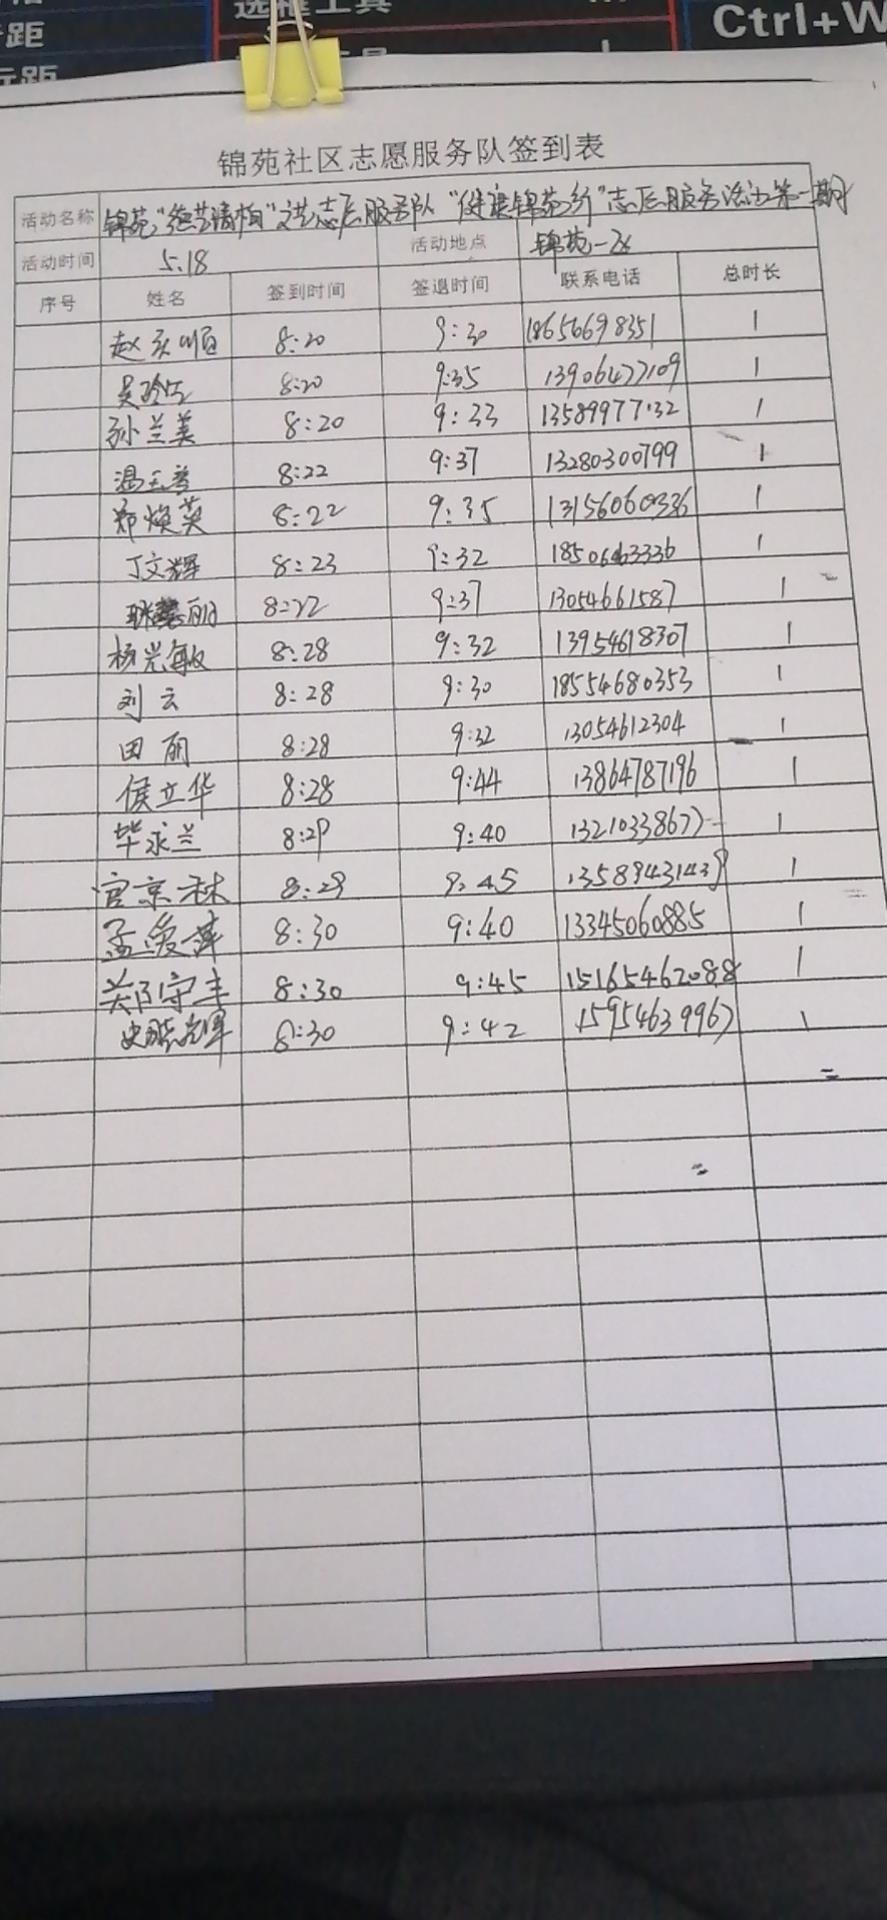 选框工具
行距
Ctrl+W
锦苑社区志愿服务队签到表
活动名称 锦苑"德艺清柏"文艺志愿服务队"健康锦苑行"志愿服务活动第一期
活动时间 5.18 活动地点 锦苑一
序号 姓名 签到时间 签退时间 联系电话 总时长
赵永顺 8:20 9:30 18656698351 1
8:20 9:35 13906477109 1
孙兰美 8:20 9:33 13589977132 1
8:22 9:37 13280300799 1
郑焕英 8:22 9:35 13156060336 1
丁文辉 8:23 9:32 18506463336 1
8:22 9:37 13054661587 1
杨光敏 8:28 9:32 13954618307 1
刘云 8:28 9:30 18554680353 1
田丽 8:28 9:32 13054612304 1
侯立华 8:28 9:44 13864787196 1
毕永兰 8:29 9:40 13210338677 1
宫京林 8:29 9:45 13589431439 1
孟爱萍 8:30 9:40 13345060885 1
郑守丰 8:30 9:45 15165462088 1
8:30 9:42 15954639967 1